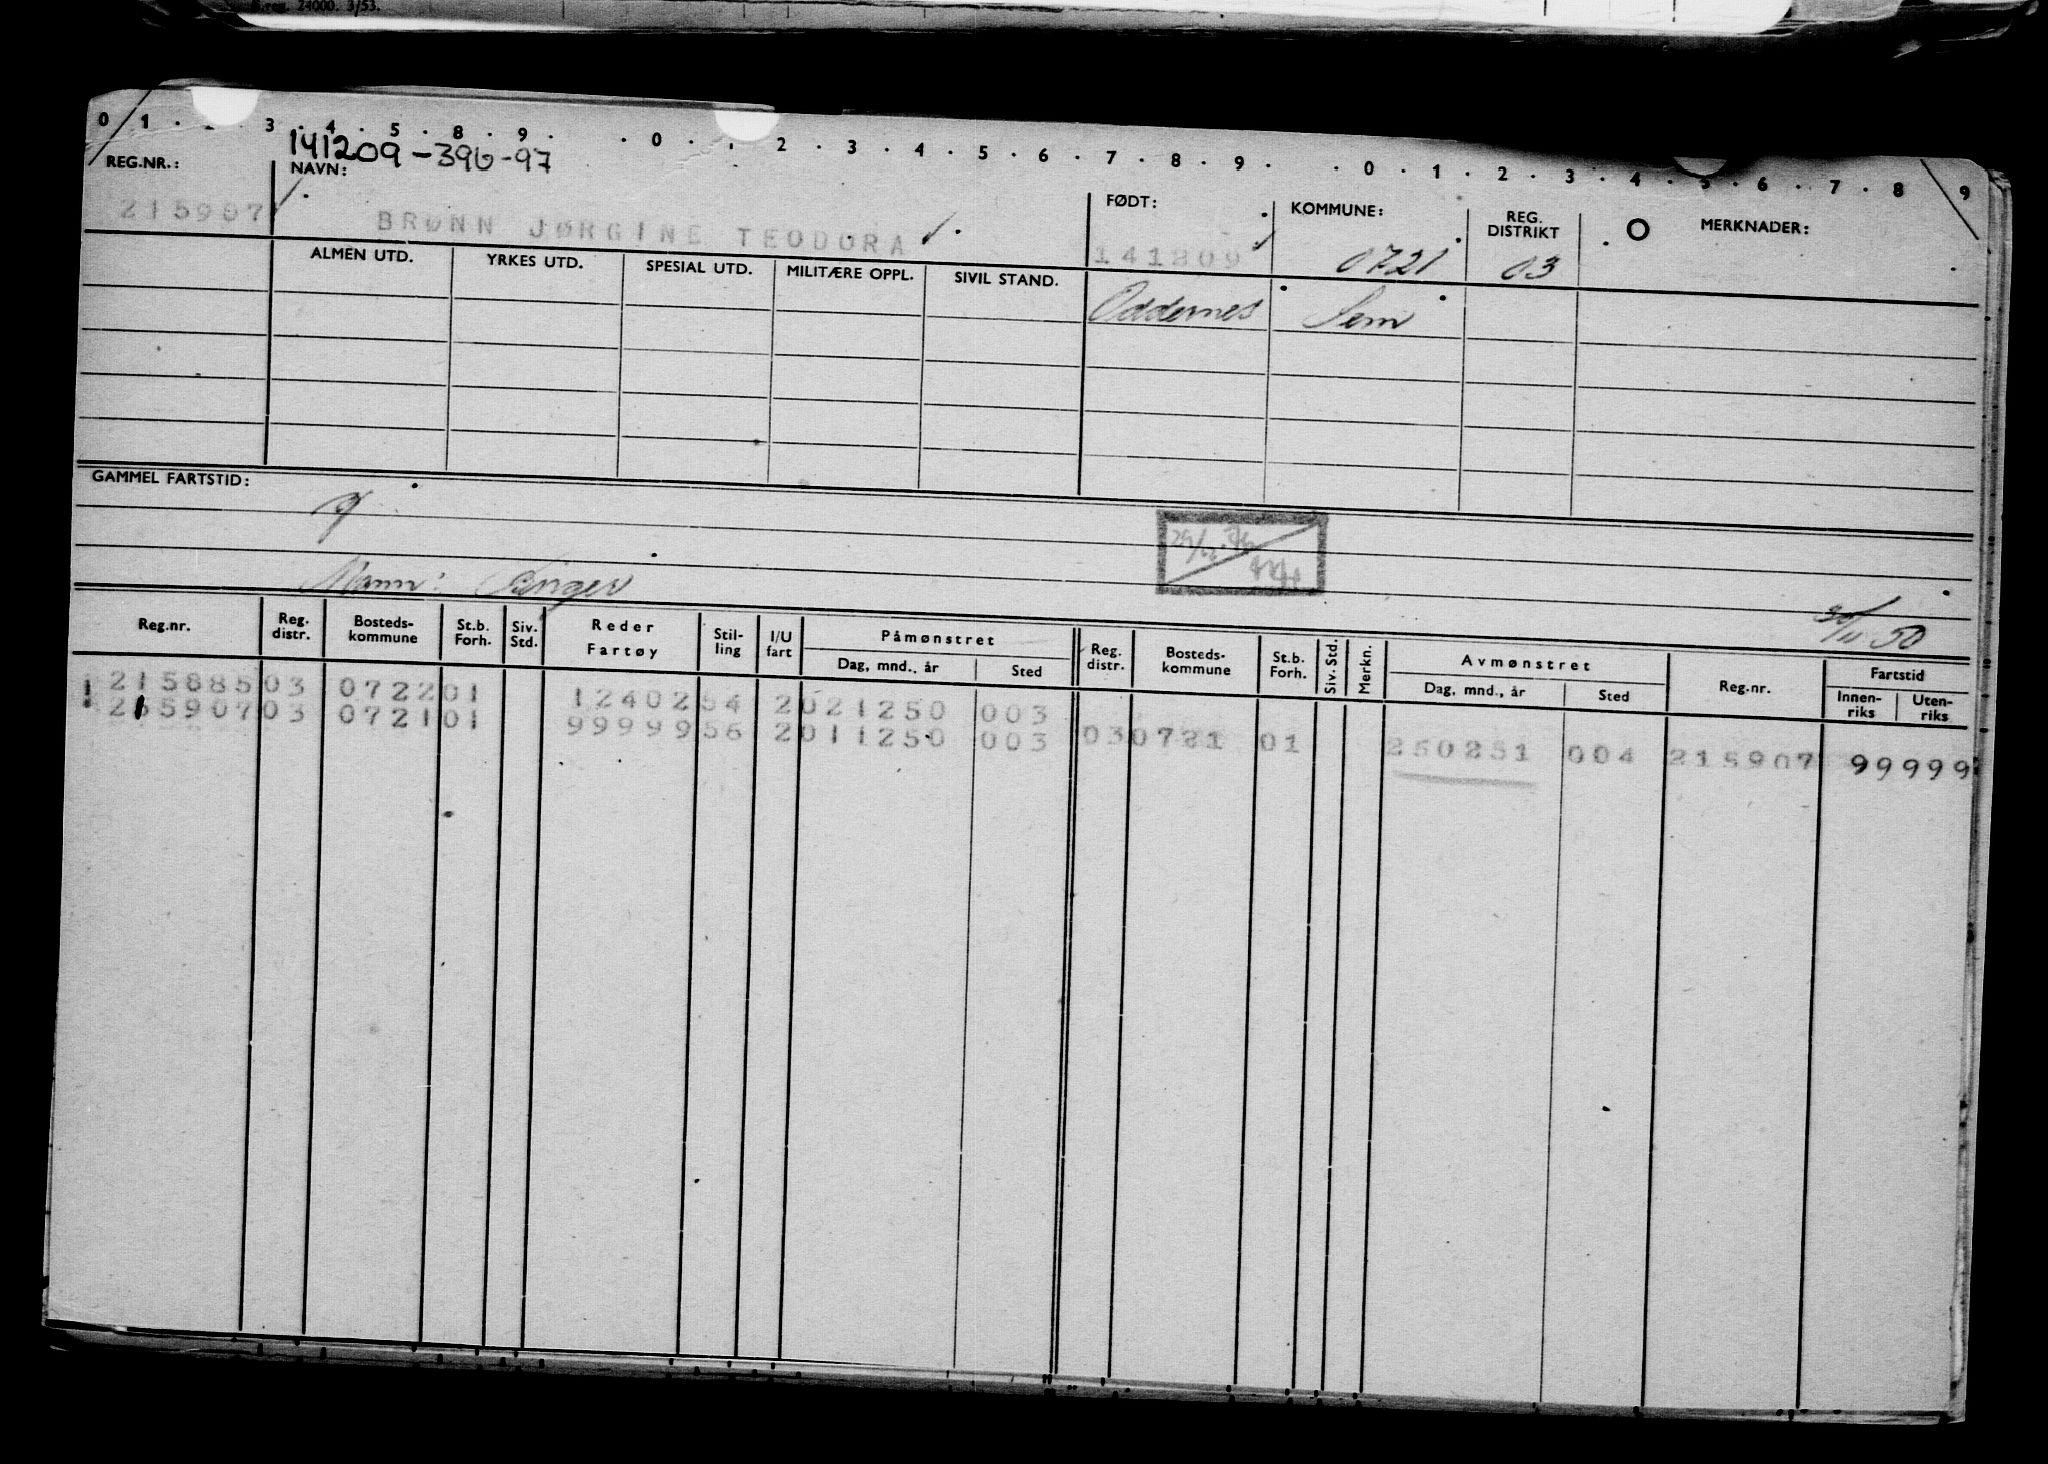 B.reg. 24000. 3/53.
0 1 . . 3 . 4 . 5 . 8 . 9 . . 0 . . 2 . 3 . 4 . 5 . 6 . 7 . 8 . 9 . . 0 . 1 . 2 . 3 . 4 . 5 . 6 . 7 . 8 . 9
141209-396-97
REG.NR.: NAVN: FØDT: KOMMUNE: REG. DISTRIKT MERKNADER:
215907 BRØNN JØRGINE TEODORA 141209 0721 03
ALMEN UTD. YRKES UTD. SPESIAL UTD. MILITÆRE OPPL. SIVIL STAND. Oddernes Sem
GAMMEL FARTSTID:
Mann:
30/11 50
Reg.nr. Reg. distr. Bosteds-kommune St.b. Forh. Siv. Std. Reder Fartøy Stil-ling I/U fart Påmønstret Dag, mnd., år Sted Reg. distr. Bosteds-kommune St.b. Forh. Siv. Std. Merkn. Avmønstret Dag, mnd., år Sted Reg.nr. Fartstid Innen-riks Uten-riks
215885 03 0722 01 12402 54 2 021250 003
215907 03 0721 01 99999 56 2 011250 003 03 0721 01 250251 004 215907 99999